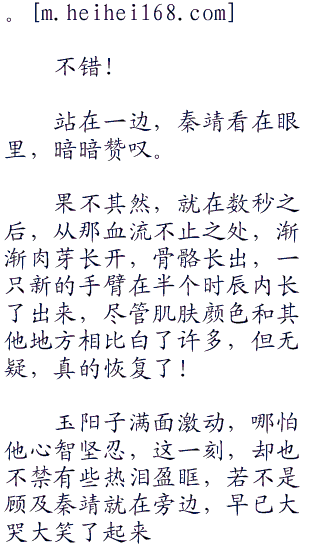 。[m.heihei168.com]
不错！
站在一边，秦靖看在眼
里，暗暗赞叹。
果不其然，就在数秒之
后，从那血流不止之处，渐
渐肉芽长开，骨骼长出，一
只新的手臂在半个时辰内长
了出来，尽管肌肤颜色和其
他地方相比白了许多，但无
疑，真的恢复了！
玉阳子满面激动，哪怕
他心智坚忍，这一刻，却也
不禁有些热泪盈眶，若不是
顾及秦靖就在旁边，早已大
哭大笑了起来